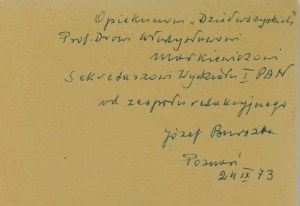 Opiekunowi „Dzieł wszystkich"
Prof. Drowi Władysławowi
Markiewiczowi
Sekretarzowi Wydziału I PAN
od zespołu redakcyjnego
Józef Burszta
Poznań
24 IX 73